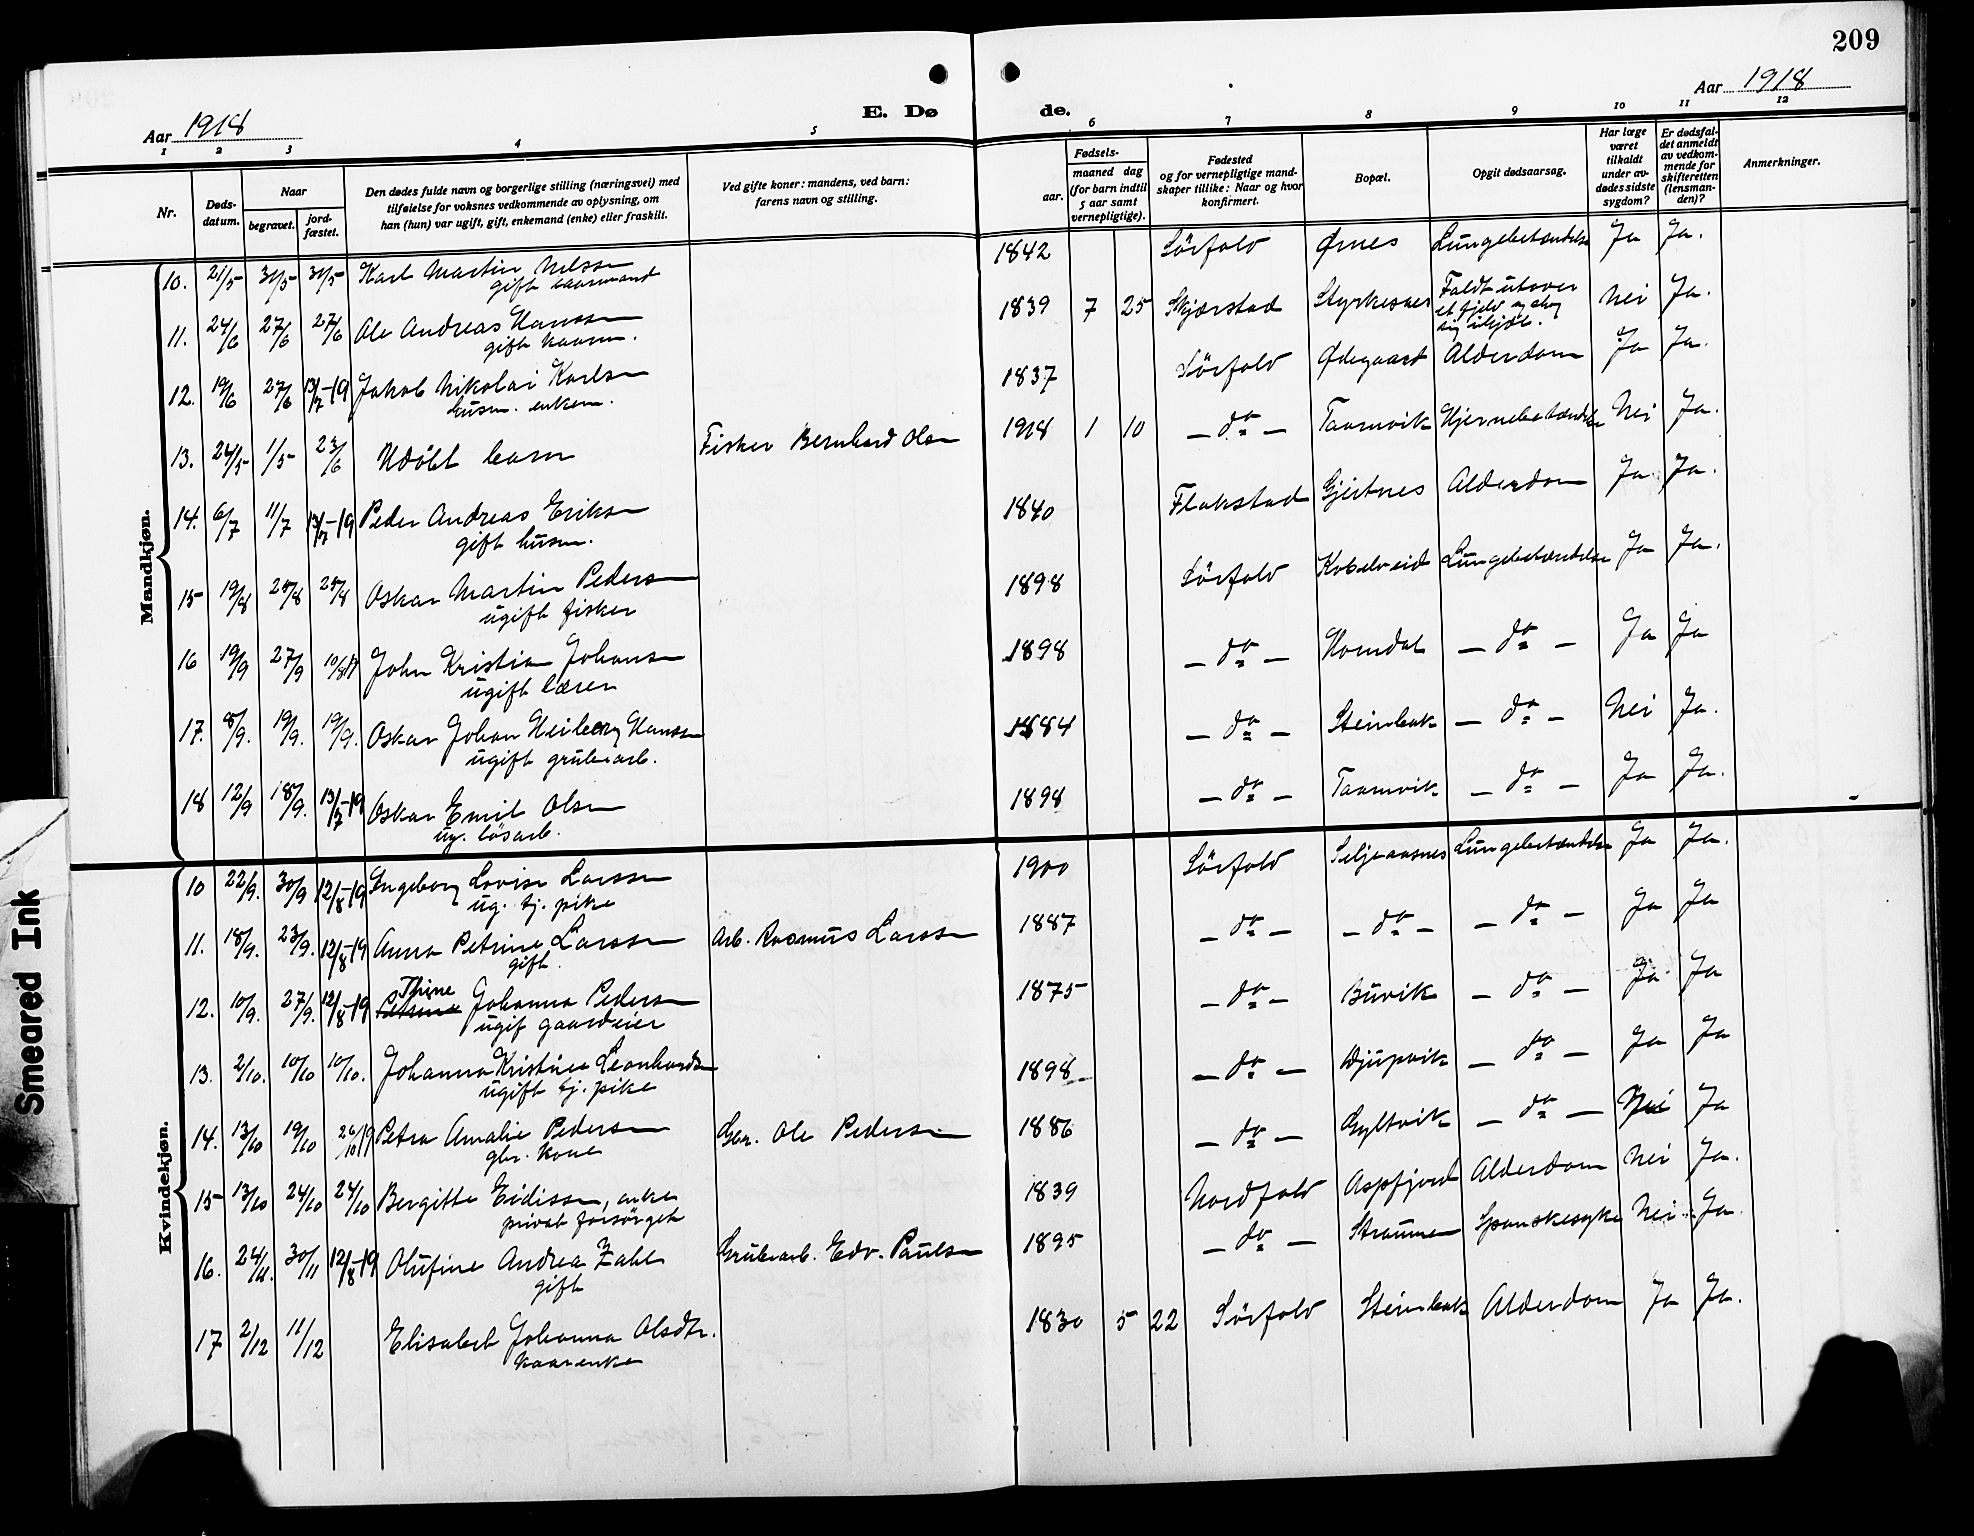 209
Aar 1918
E. Dø
de.
Aar 1918
1 2 3 4 5 6 7 8 9 10 11 12
Nr.
Døds-
datum.
Naar
begravet.
jord-
fæstet.
Den dødes fulde navn og borgerlige stilling (næringsvei) med
tilføielse for voksnes vedkommende av oplysning, om
han (hun) var ugift, gift, enkemand (enke) eller fraskilt.
Ved gifte koner: mandens, ved barn:
farens navn og stilling.
Fødsels-
aar.
maaned dag
(for barn indtil
5 aar samt
vernepligtige).
Fødested
og for vernepligtige mand-
skaper tillike: Naar og hvor
konfirmert.
Bopæl.
Opgit dødsaarsag.
Har læge
været
tilkaldt
under av-
dødes sidste
sygdom?
Er dødsfal-
det anmeldt
av vedkom-
mende for
skifteretten
(lensman-
den)?
Anmerkninger.
Mandkjøn.
10. 21/5 31/5 31/5 Karl Martin Nilssen 1842 Sörfold Ørnes Lungebetændelse Ja Ja.
gift kaarmand
11. 24/6 27/6 27/6 Ole Andreas Hanssen 1839 7 25 Skjærstad Styrkesnes Faldt utover Nei Ja.
gift kaarm. et fjeld og slog
sig ihjæl.
12. 19/6 27/6 13/7-19 Jakob Nikolai Karlsen 1837 Sörfold Ødegaard Alderdom Ja Ja.
husm. enkem.
13. 24/5 1/5 23/6 Udöbt barn Fisker Bernhard Olsen 1918 1 10 - do - Taarnvik Hjernebetændelse Nei Ja.
14. 6/7 11/7 13/7-19 Peder Andreas Eriksen 1840 Flakstad Gjertnes Alderdom Ja Ja.
gift husm.
15 19/8 25/8 25/8 Oskar Martin Pedersen 1898 Sörfold Kobelveid Lungebetændelse Ja Ja.
ugift fisker
16 19/9 27/9 10/8 19 John Kristian Johansen 1898 - do - Horndal - do - Ja Ja
ugift lærer
17. 8/9. 19/9. 19/9. Oskar Johan Heiberg Hanssen 1884 - do - Steinbak - do - Nei Ja.
ugift grubearb.
18 12/9 18/9. 13/7-19 Oskar Emil Olsen 1898 - do - Taarnvik - do - Ja Ja.
ug. lösarb.
Kvindekjøn.
10 22/9. 30/9 12/8-19 Ingeborg Lovise Larssen 1900 Sörfold Seljeaasnes Lungebetændelse Ja Ja.
ug. tj. pike
11. 18/9. 23/9. 12/8-19 Anna Petrine Larssen Arb. Rasmus Larssen 1887 - do - - do - - do - Ja Ja
gift
Thine
12. 10/9. 27/9. 12/8-19 Petrine Johanna Pedersen 1875 - do - Buvik - do - Ja Ja
ugif gaardeier
13. 2/10. 10/10 10/10. Johanna Kristine Leonhardsen 1898 - do - Djupvik - do - Ja Ja
ugift tj. pike
14. 13/10 19/10 26/10 19 Petra Amalie Pedersen Gbr. Ole Pedersen 1886 - do - Gyltvik - do - Nei Ja
gbr. kone
15 13/10 24/10 24/10 Bergitte Eidissen, enke 1839 Nordfold Aspfjord Alderdom Nei Ja.
privat forsörget
16. 24/11. 30/11 12/8-19 Olufine Andrea Zahl Grubearb. Edv. Paulsen 1895 - do - Straumen Spanskesyke Nei Ja.
gift
17 2/12 11/12 Elisabet Johanna Olsdtr. 1830 5 22 Sörfold Steinbak Alderdom Ja Ja.
kaarenke
Smeared Ink